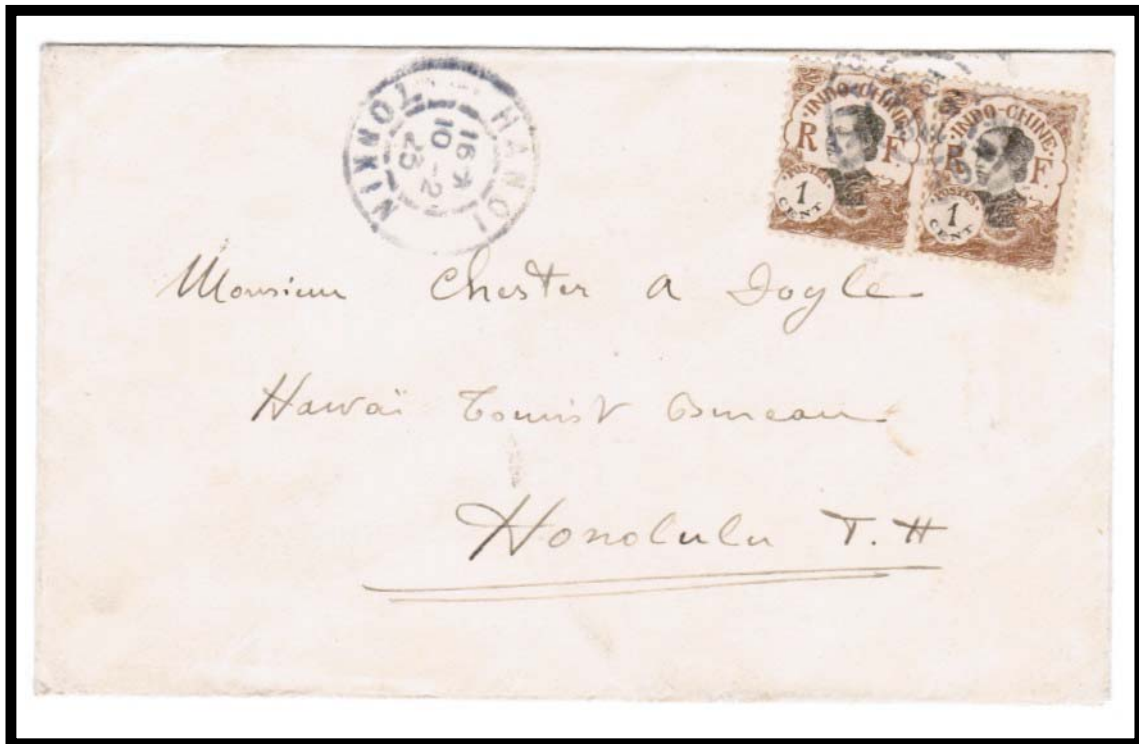 HANOI
TONKIN
16 K
10 -2
23
INDO-CHINE
R F
POSTES
1
CENT
INDO-CHINE
R F
POSTES
1
CENT
Monsieur Chester A Doyle
Hawaï Tourist Bureau
Honolulu T. H